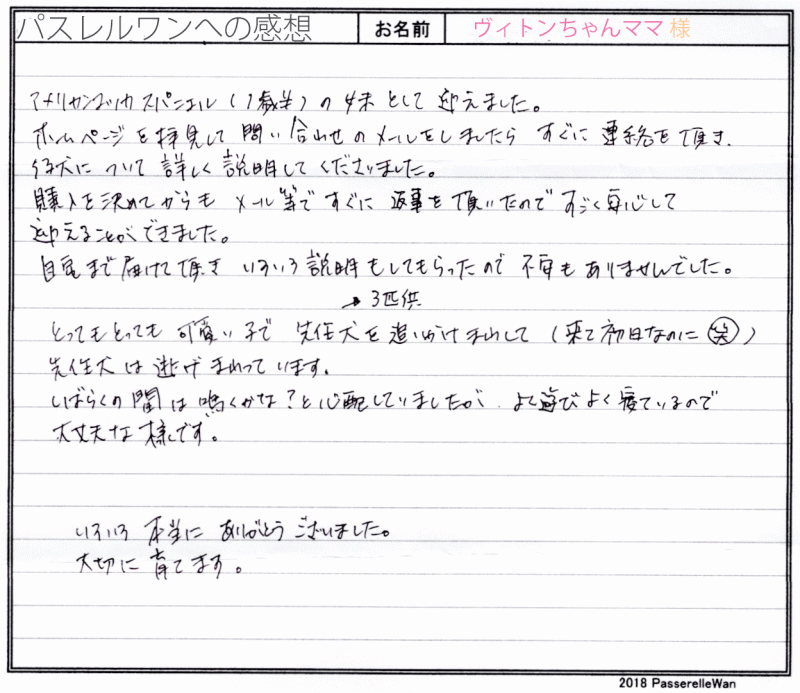 パスレルワンへの感想 お名前 ヴィトンちゃんママ 様
アメリカンコッカスパニエル(1歳半)の妹として迎えました。
ホームページを拝見して問い合わせのメールをしましたらすぐに連絡を頂き、
仔犬について詳しく説明してくださいました。
購入を決めてからもメール等ですぐに返事を頂いたのですごく安心して
迎えることができました。
自宅まで届けて頂きいろいろ説明もしてもらったので不安もありませんでした。
3匹供
とってもとっても可愛い子で先住犬を追いかけまわして(来て初日なのに笑)
先住犬は逃げまわっています。
しばらくの間は鳴くかな?と心配していましたが、よく遊びよく寝ているので
大丈夫な様です。
いろいろ本当にありがとうございました。
大切に育てます。
2018 PasserelleWan